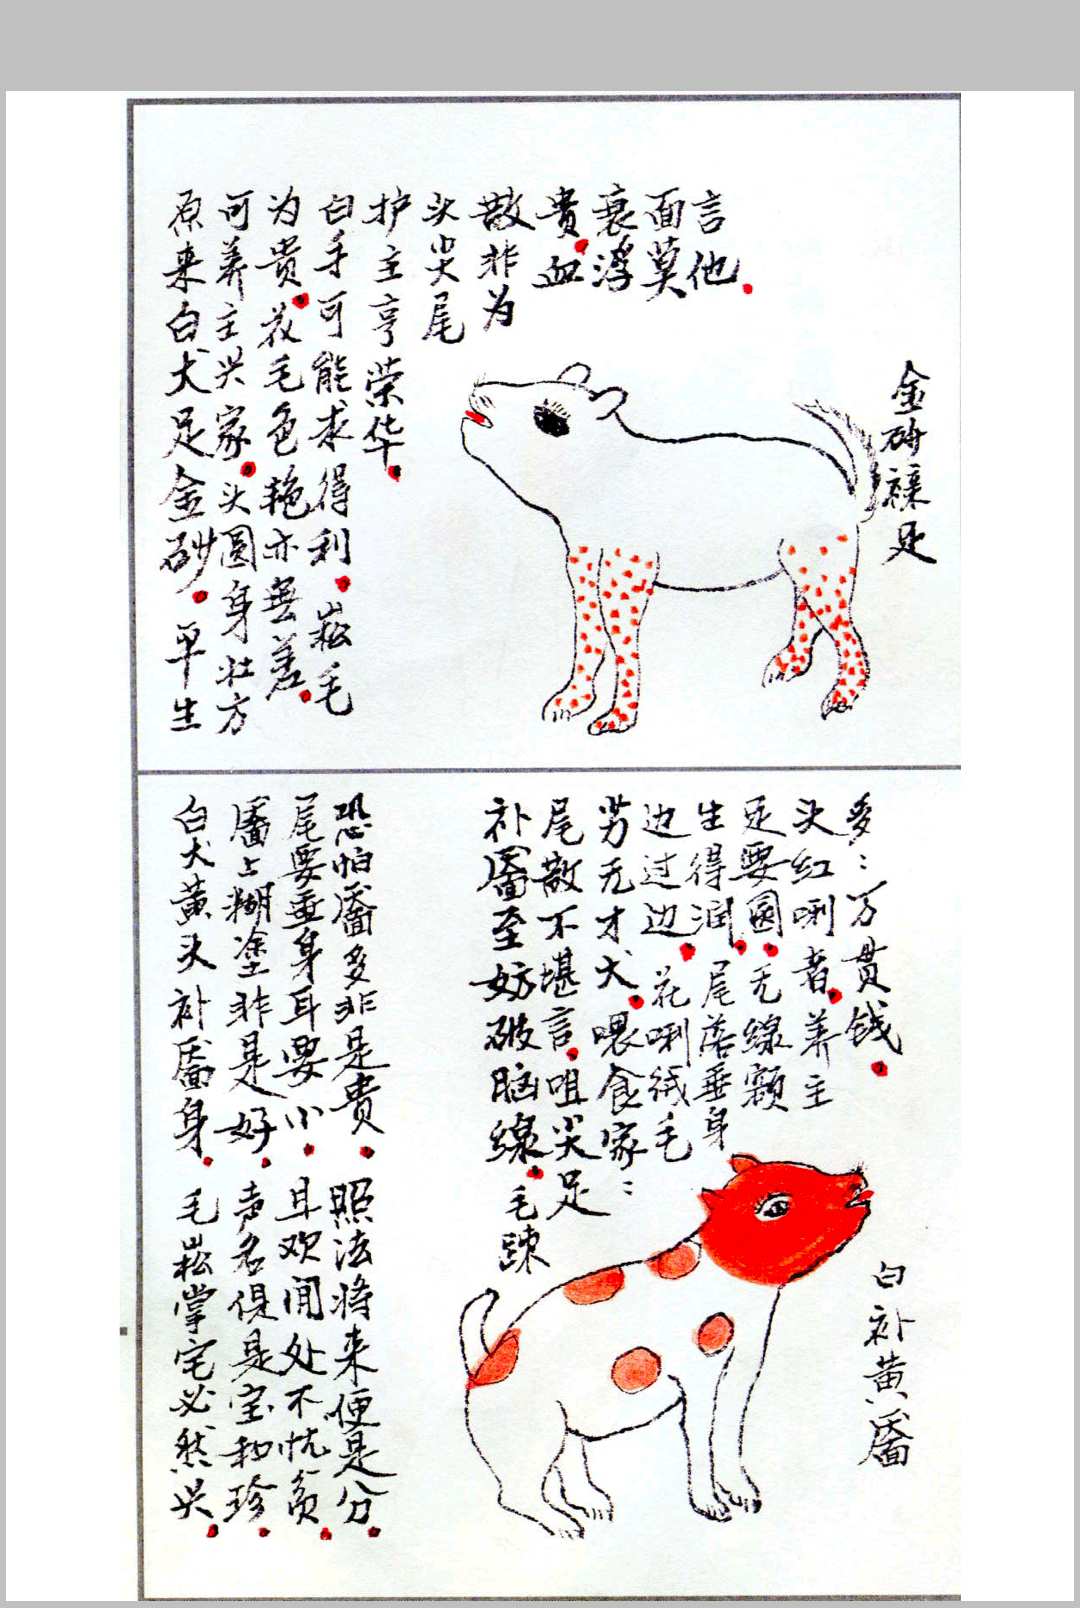 金砂裸足
原来白犬足金砂。平生
可养主兴家。头圆身壮方
为贵。衣毛色艳亦無差。
白手可能求得利。崧毛
护主亨荣华。
头尖尾
散非为
貴。血
衰浮
面莫
言他。
白补黄靥
白犬黄头补靥身。毛崧掌宅必然兴。
靥上糊塗非是好。声名俱是宝和珍。
尾要垂身耳要小。耳欢闻处不忧贫。
恐怕靥多非是貴。照法将来便是分。
补靥至妨破脑線。毛踈
尾散不堪言。咀尖足
劣无才犬。喂食家：
边过边。花唎絨毛
生得润。尾落垂身
足要圆。无線額
头红唎者。养主
多：万贯钱。